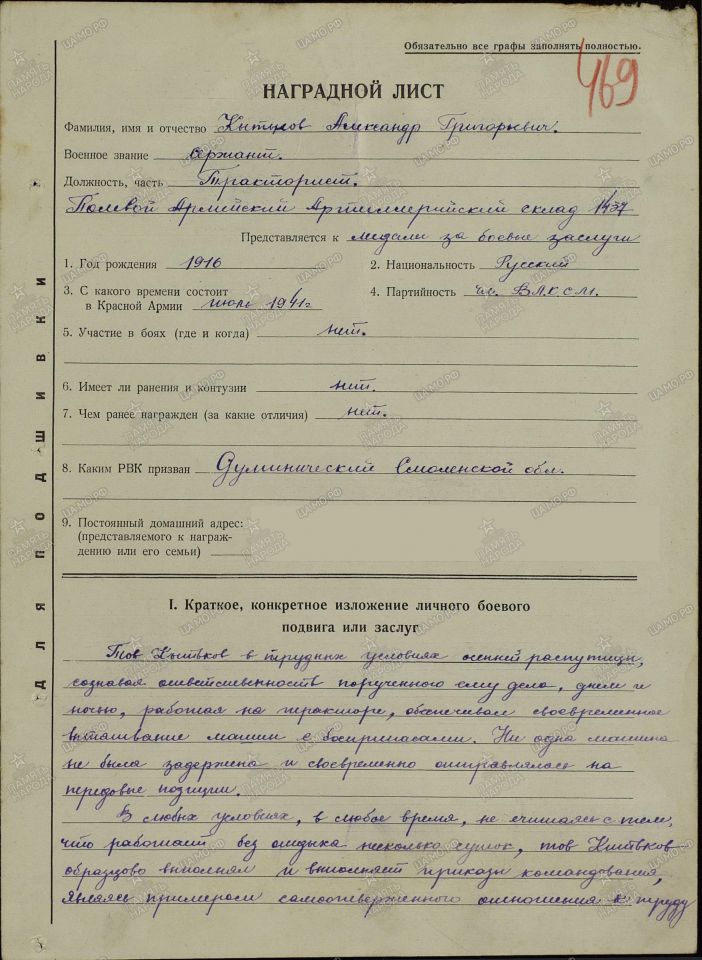 Обязательно все графы заполнять полностью.
469
НАГРАДНОЙ ЛИСТ
Фамилия, имя и отчество Александр Григорьевич.
Военное звание сержант.
Должность, часть Тракторист.
Полевой Армейский Артиллерийский склад 1437
Представляется к медали за боевые заслуги
1. Год рождения 1916
2. Национальность Русский
3. С какого времени состоит
в Красной Армии июль 1941г.
4. Партийность чл. ВЛКСМ.
5. Участие в боях (где и когда) нет.
6. Имеет ли ранения и контузии нет.
7. Чем ранее награжден (за какие отличия) нет.
8. Каким РВК призван Думиническим Смоленской обл.
9. Постоянный домашний адрес:
(представляемого к награж-
дению или его семьи)
ДЛЯ ПОДШИВКИ
I. Краткое, конкретное изложение личного боевого
подвига или заслуг
Тов в трудных условиях осенней распутицы,
сознавая ответственность порученного ему дела, днем и
ночью, работая на тракторе, обеспечивал своевременное
вытаскивание машин с боеприпасами. Ни одна машина
не была задержена и своевременно отправлялась на
передовые позиции.
В любых условиях, в любое время, не считаясь с тем,
что работает без отдыха несколько суток, тов
образцово выполнял и выполняет приказы командования,
являясь примером самоотверженного отношения к труду